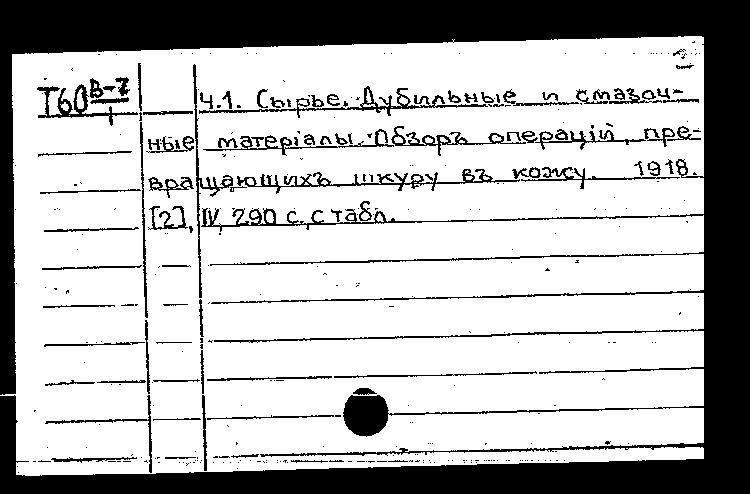 Т60 В-7/1 Ч.1. Сырье. Дубильные и смазоч-
ные матерiалы. Обзоръ операцiй, пре-
вращающихъ шкуру въ кожу. 1918.
[2], IV, 290 с., с табл.